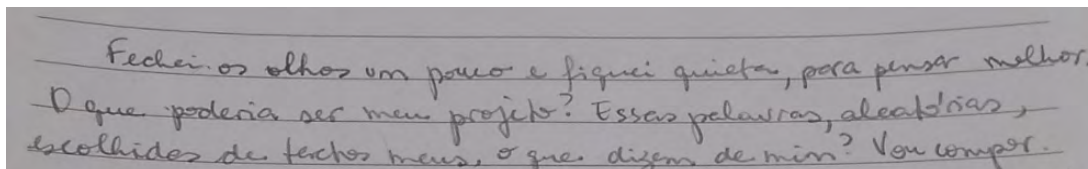 Fechei os olhos um pouco e fiquei quieta, para pensar melhor.
O que poderia ser meu projeto? Essas palavras, aleatórias,
escolhidas de textos meus, o que dizem de mim? Vou compor.